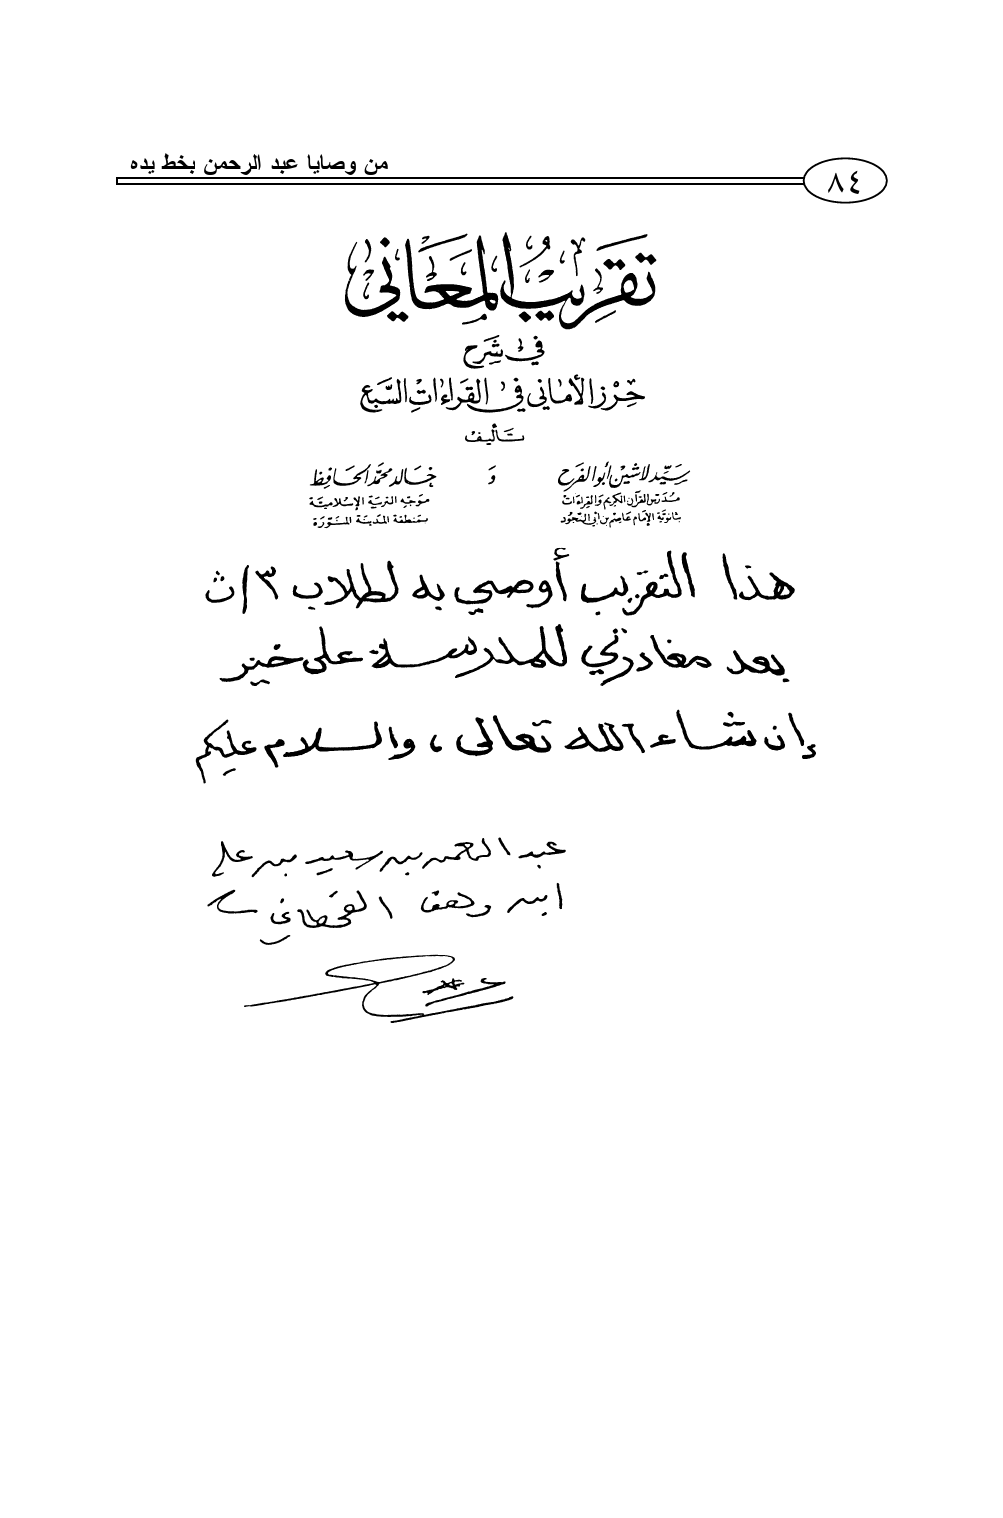 من وصايا عبد الرحمن بخط يده
٨٤
تقريب المعاني
في شرح
حرز الأماني في القراءات السبع
تأليف
سيد لاشين أبو الفرح و خالد محمد الحافظ
مدرس القرآن الكريم والقراءات موجه التربية الإسلامية
بثانوية الإمام عاصم بن أبي النجود بمنطقة المدينة المنورة
هذا التقريب أوصي به لطلاب ٣/ث
بعد مغادرتي للمدرسة على خير
إن شاء الله تعالى، والسلام عليكم
عبد الرحمن بن سعيد بن علي
ابن وهف القحطاني